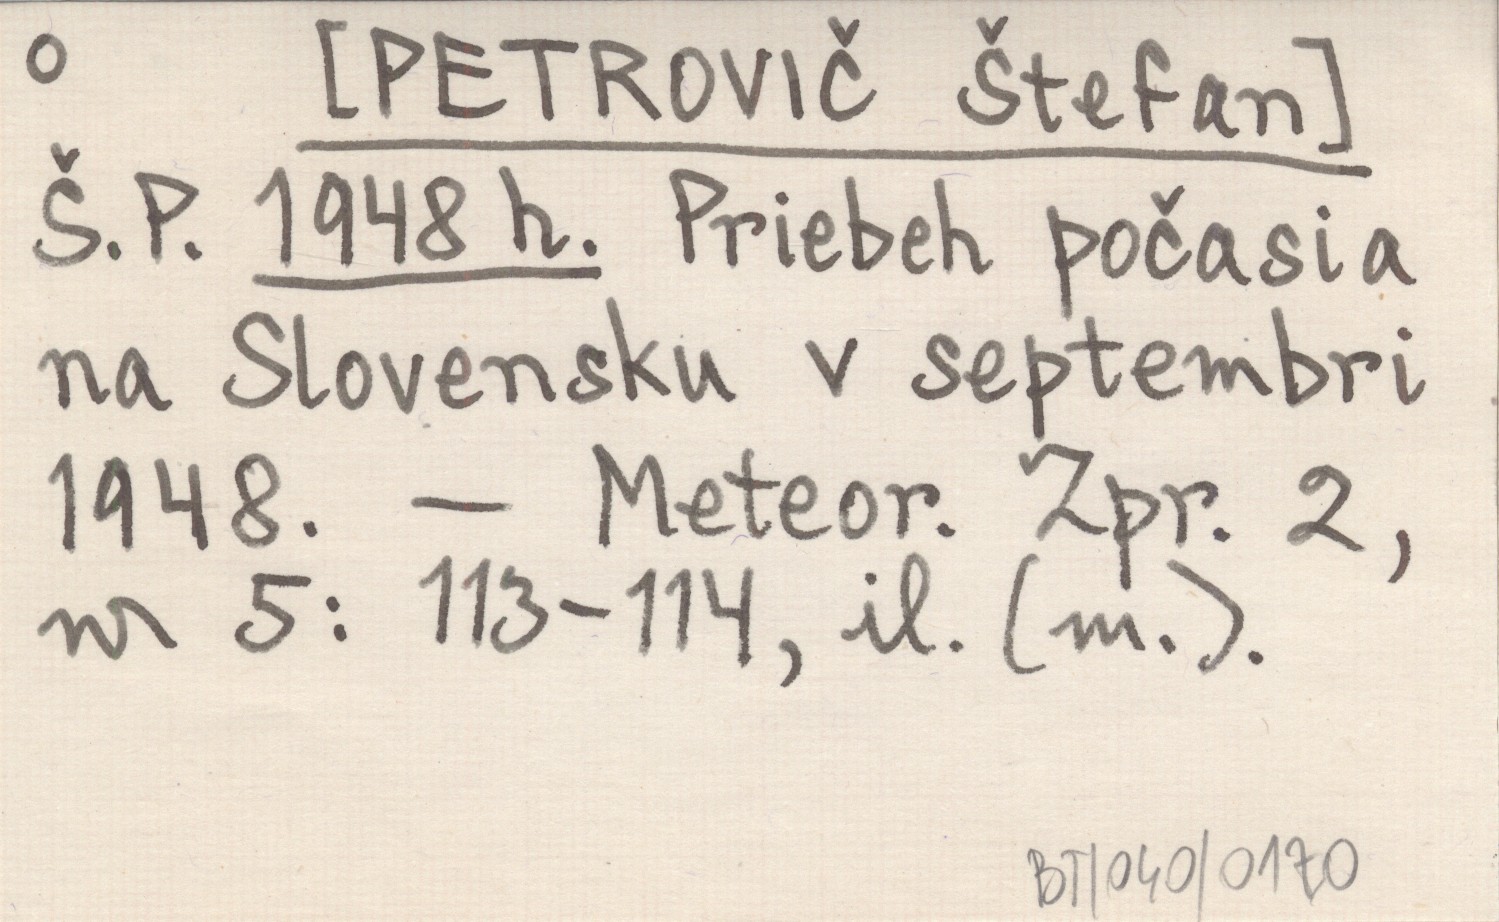 o [PETROVIČ Štefan]
Š.P. 1948 h. Priebeh počasia
na Slovensku v septembri
1948. — Meteor. Zpr. 2,
nr 5: 113-114, il. (m.).
BT/040/0170